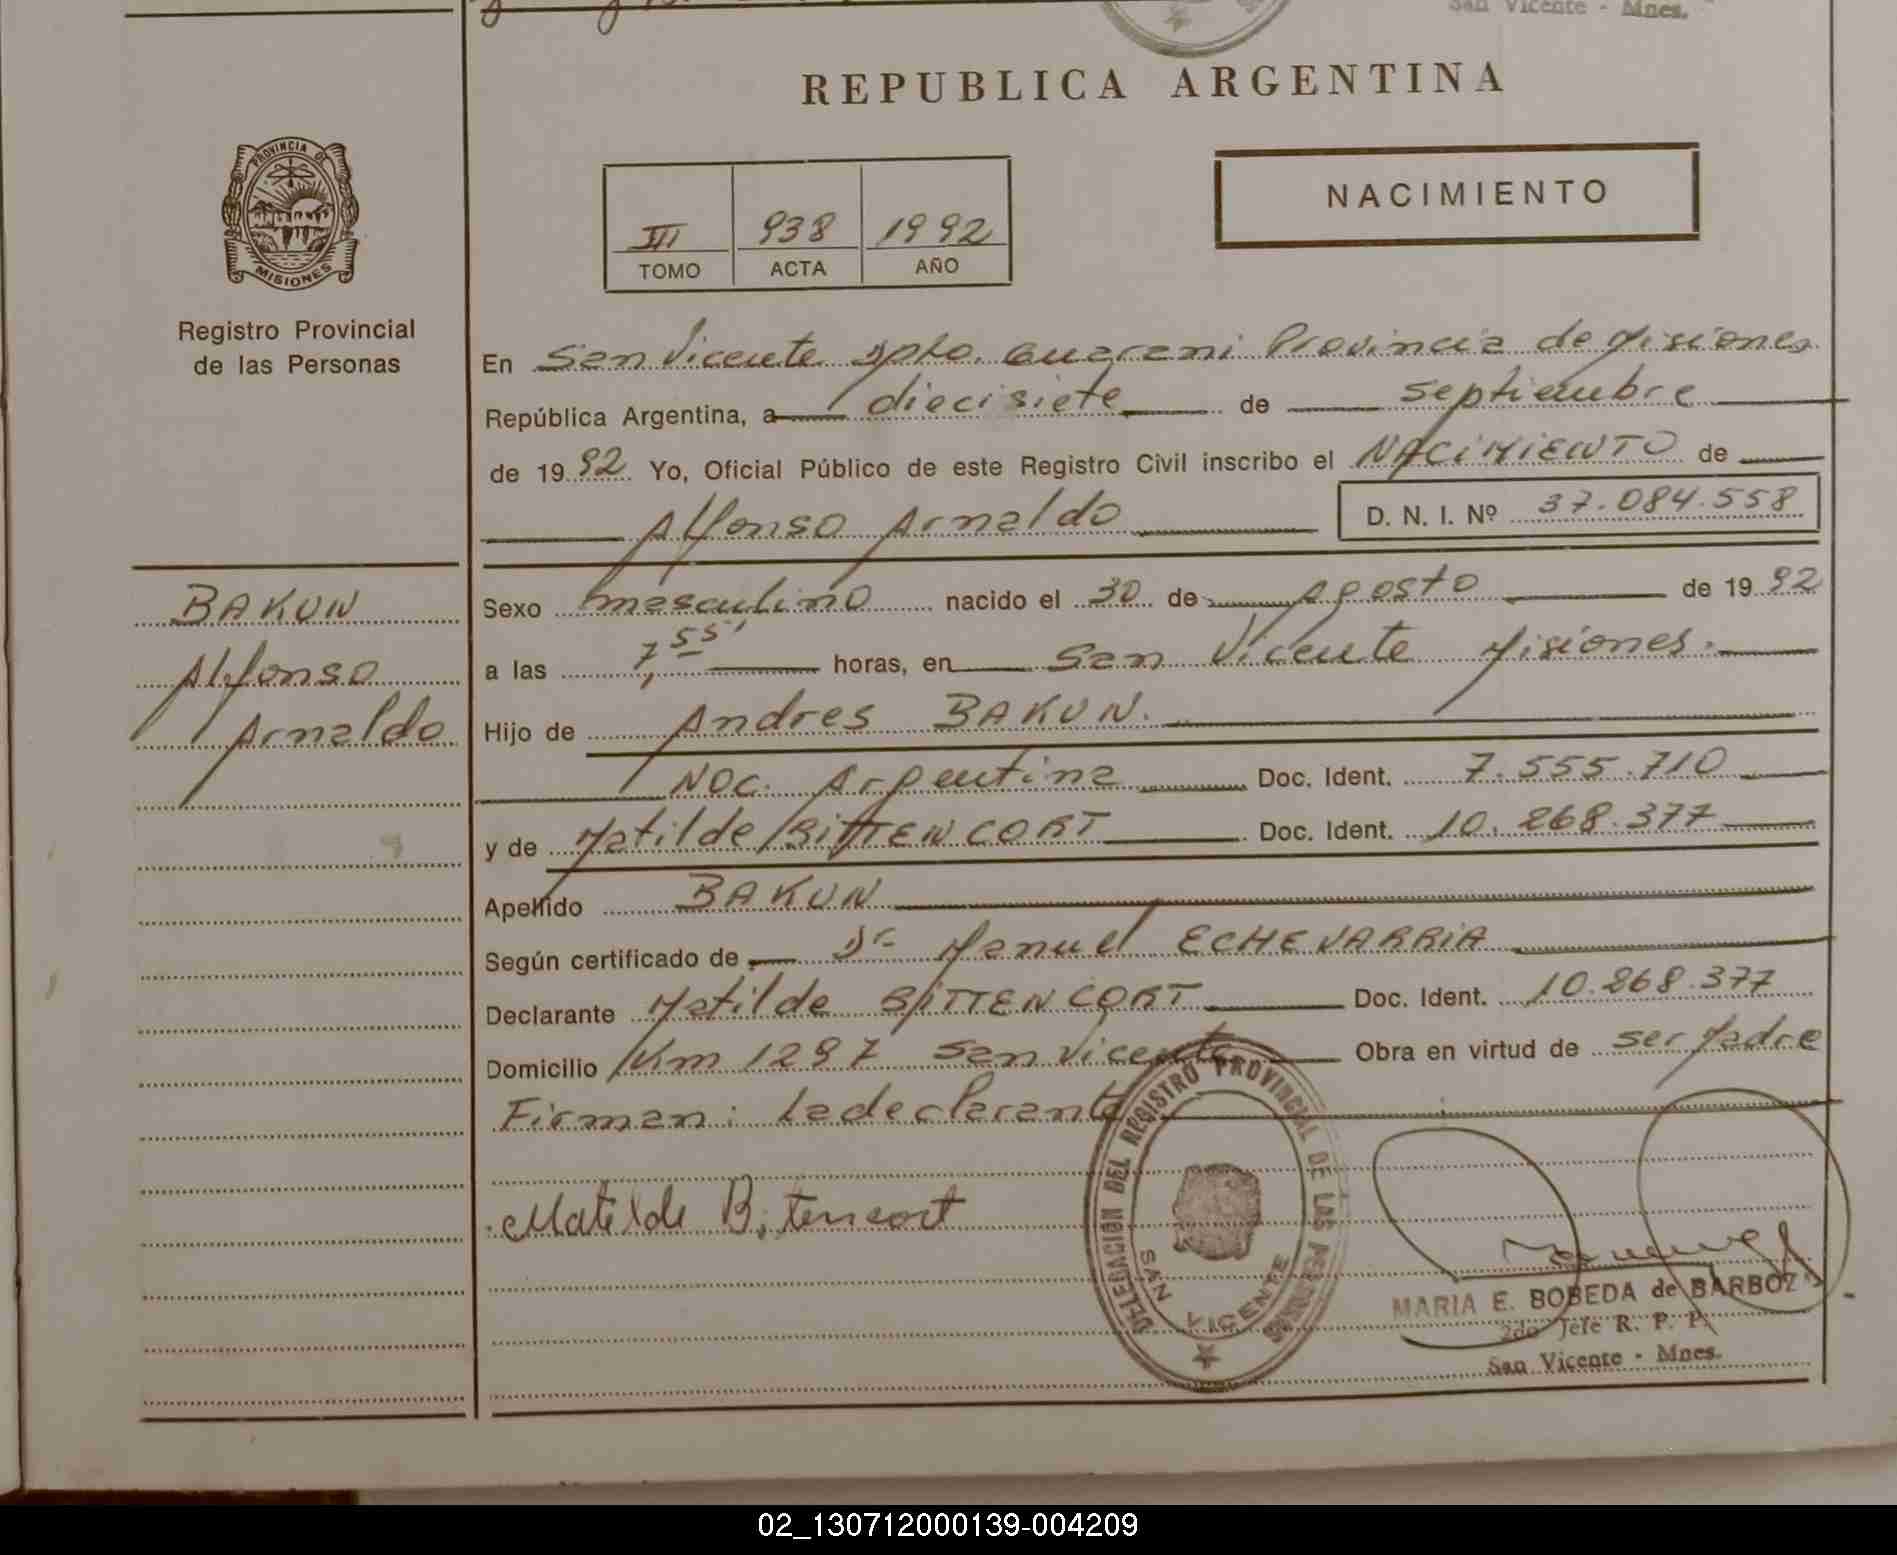 San Vicente - Mnes.
REPUBLICA ARGENTINA
PROVINCIA DE
MISIONES
NACIMIENTO
III 938 1992
TOMO ACTA AÑO
Registro Provincial
de las Personas
En San Vicente Dpto. Guarani Provincia de Misiones
República Argentina, a diecisiete de septiembre
de 1992 Yo, Oficial Público de este Registro Civil inscribo el NACIMIENTO de
Alfonso Arnaldo D. N. I. Nº 37.084.558
BAKUN
Alfonso
Arnaldo
Sexo masculino nacido el 30 de Agosto de 1992
a las 7,55' horas, en San Vicente Misiones.
Hijo de Andres BAKUN.
Nac. Argentina Doc. Ident. 7.555.710
y de Matilde BITTENCORT Doc. Ident. 10.268.377
Apellido BAKUN
Según certificado de Dr Manuel ECHEVARRIA
Declarante Matilde BITTENCORT Doc. Ident. 10.268.377
Domicilio Km 1287 San Vicente Obra en virtud de ser Madre
Firman: La declarante
Matilde Bitencort
DELEGACION DEL REGISTRO PROVINCIAL DE LAS PERSONAS
SAN VICENTE
MARIA E. BOBEDA de BARBOZ
2do Jefe R. P. P.
San Vicente - Mnes.
02_130712000139-004209